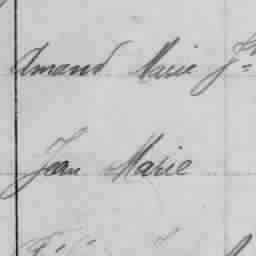 Amand Marie Jh
Jean Marie